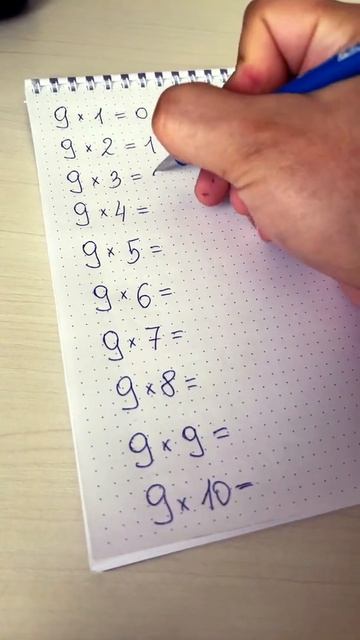 9 × 1 = 0
9 × 2 = 1
9 × 3 =
9 × 4 =
9 × 5 =
9 × 6 =
9 × 7 =
9 × 8 =
9 × 9 =
9 × 10 =